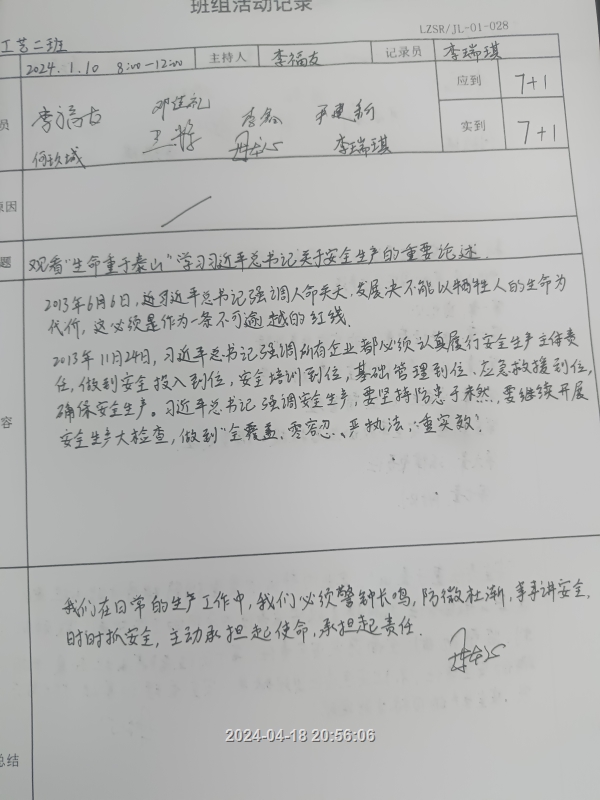 班组活动记录
LZSR/JL-01-028
工艺二班
2024.1.10 8:00-12:00 主持人 李福友 记录员 李瑞琪
员 应到 7+1
李福友 邓佳礼 李鑫
实到 7+1
何玖城 李瑞琪
原因
题 观看"生命重于泰山"学习习近平总书记关于安全生产的重要论述.
2013年6月6日,近习近平总书记强调人命关天,发展决不能以牺牲人的生命为
代价,这必须是作为一条不可逾越的红线.
2013年11月24日,习近平总书记强调所有企业都必须认真履行安全生产主体责
任,做到安全投入到位,安全培训到位,基础管理到位、应急救援到位,
容 确保安全生产。习近平总书记强调安全生产,要坚持防患于未然,要继续开展
安全生产大检查,做到"全覆盖、零容忍、严执法、重实效".
我们在日常的生产工作中,我们必须警钟长鸣,防微杜渐,事事讲安全,
时时抓安全,主动承担起使命,承担起责任.
总结
2024-04-18 20:56:06